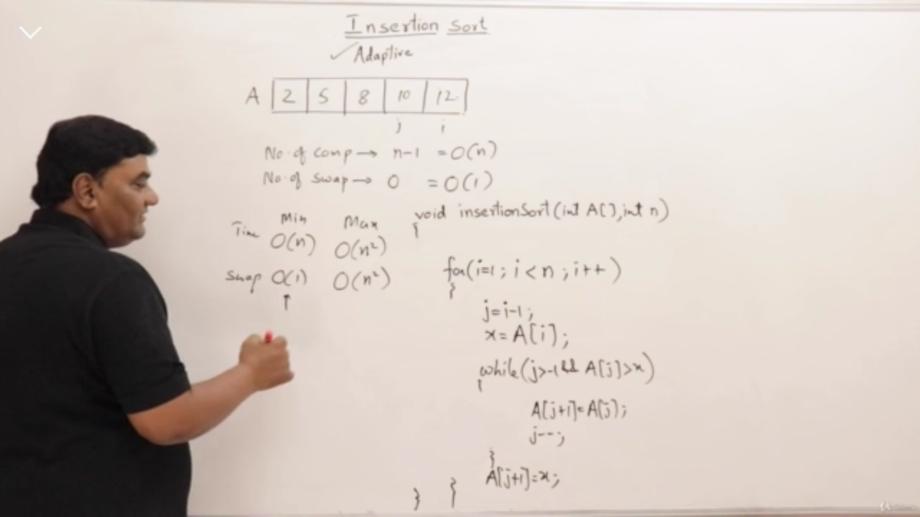 Insertion Sort
✓Adaptive
A 2 5 8 10 12
j i
No. of comp → n-1 = O(n)
No. of swap → 0 = O(1)
Min Max
Time O(n) O(n²)
Swap O(1) O(n²)
↑
void insertionSort(int A[], int n)
{
for(i=1; i<n; i++)
{
j=i-1;
x=A[i];
while(j>-1 && A[j]>x)
{
A[j+1]=A[j];
j--;
}
A[j+1]=x;
}
}